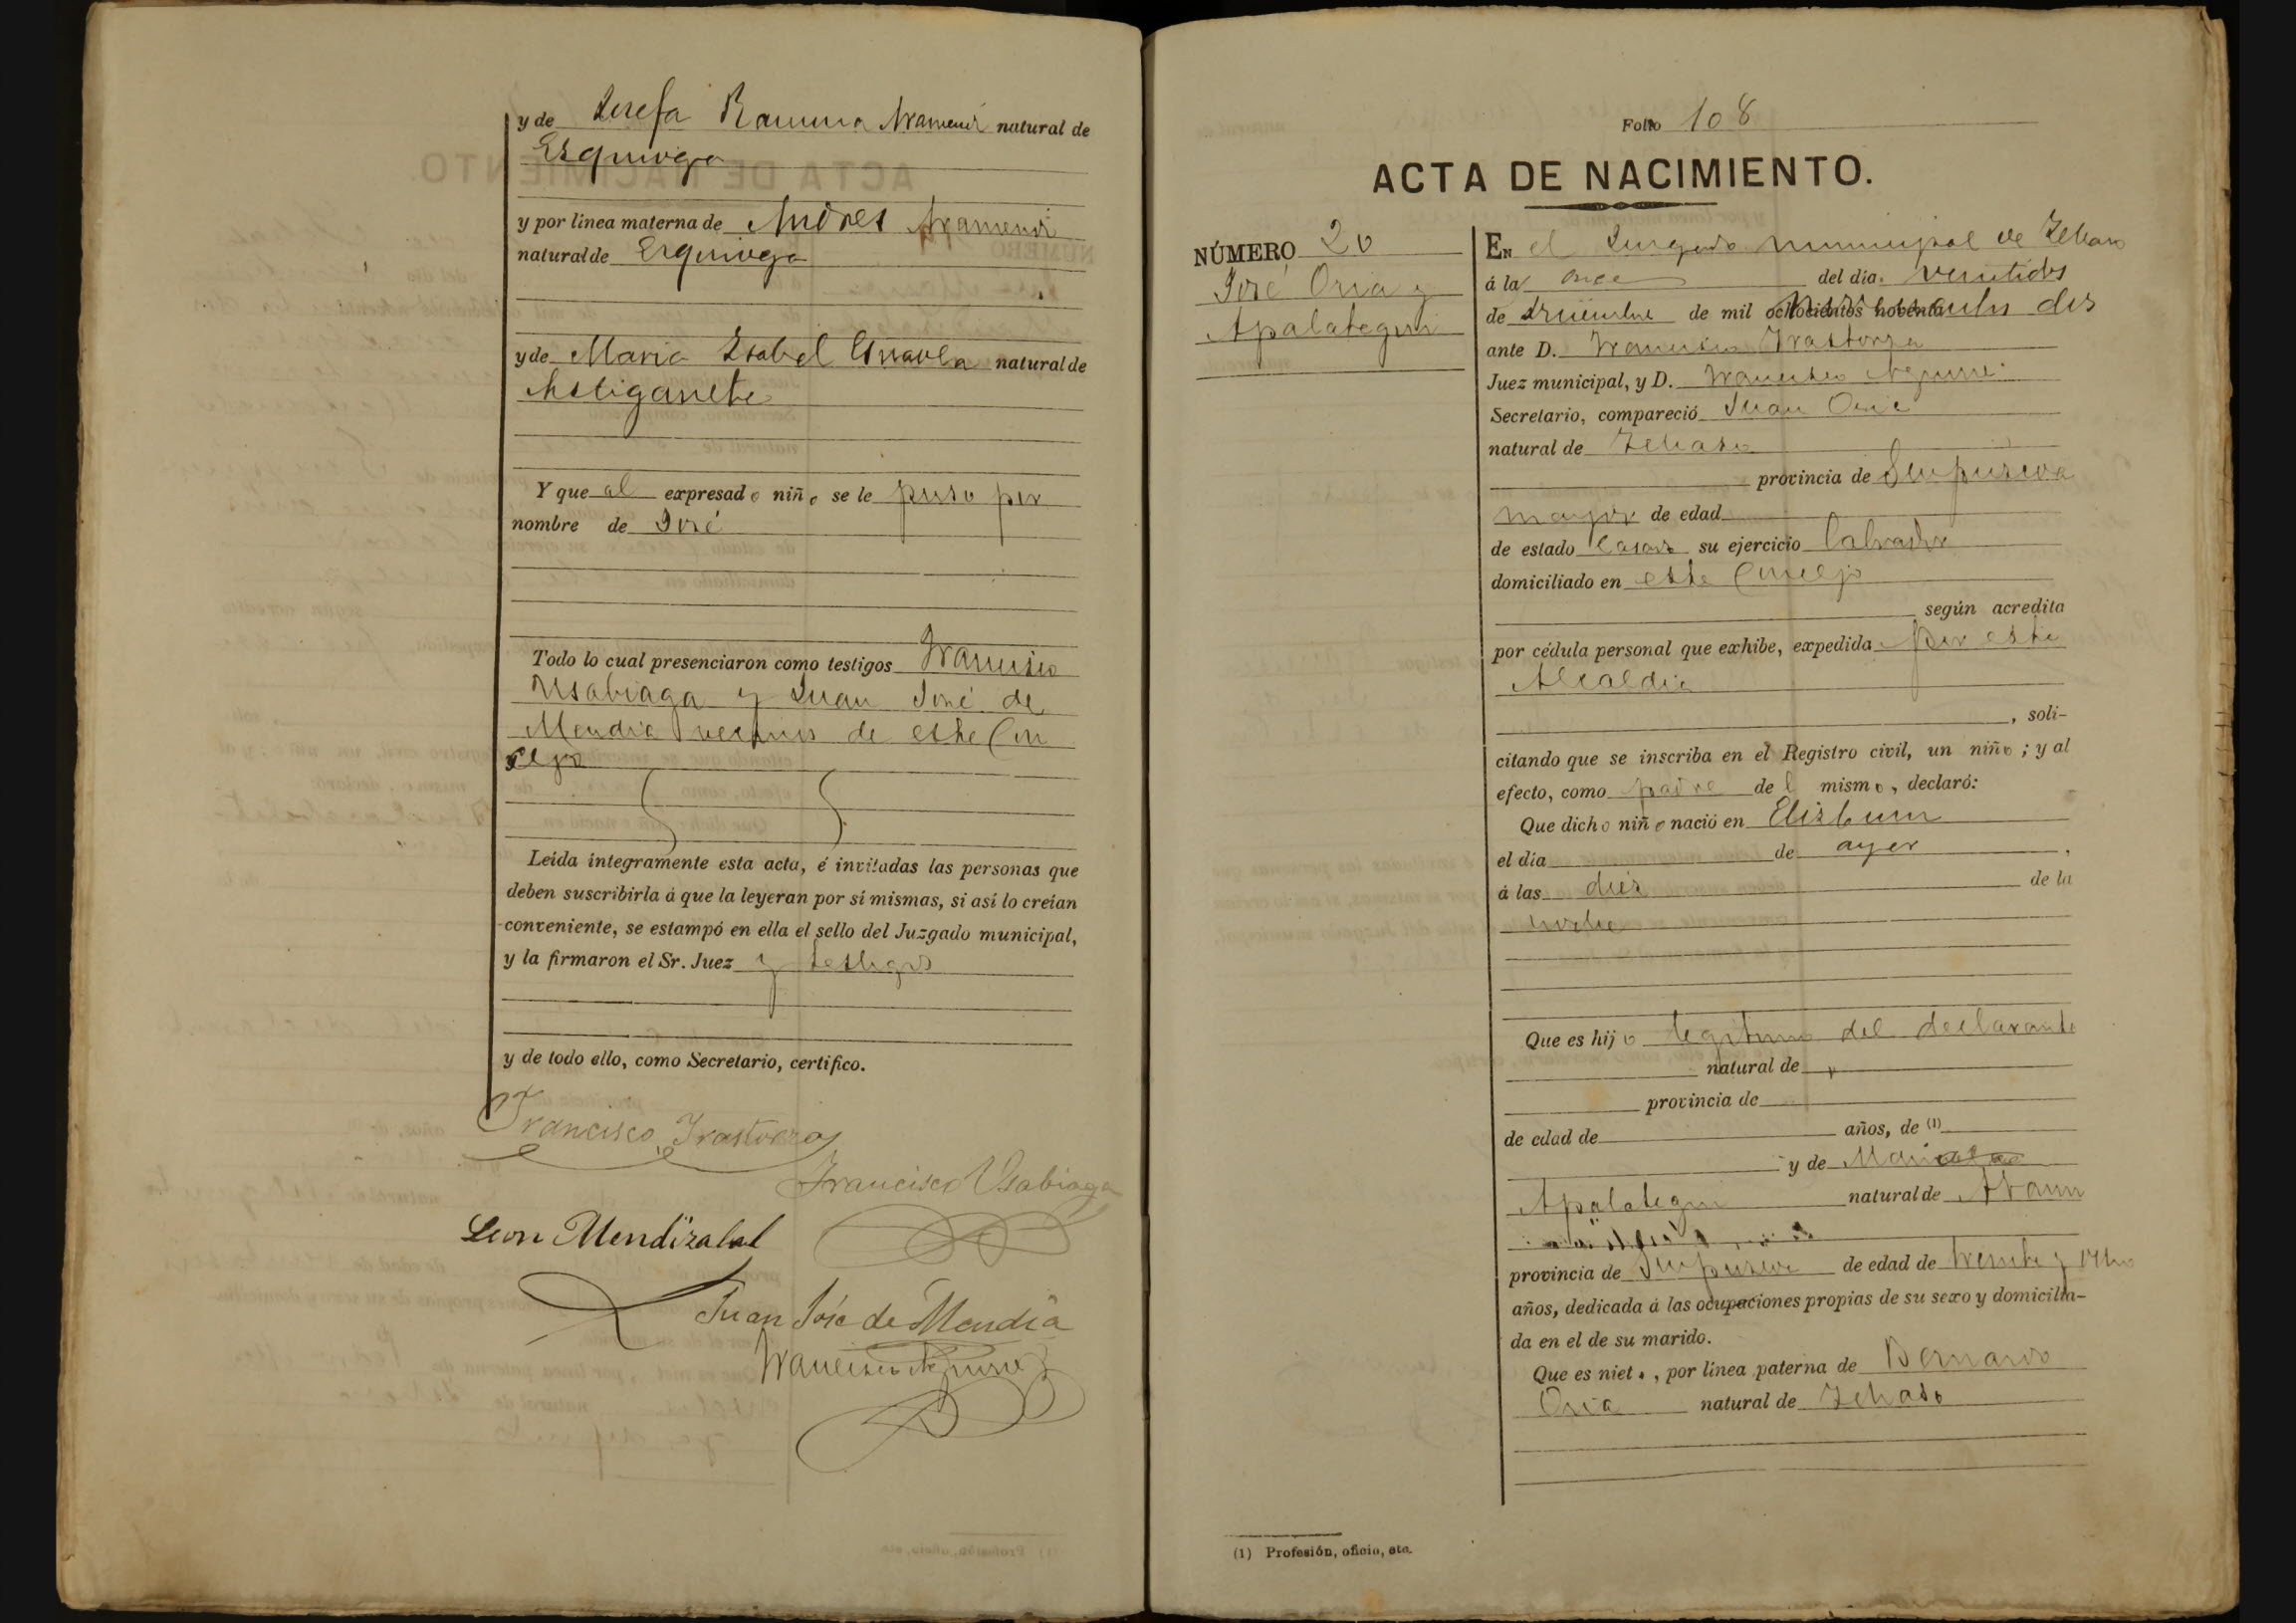 y de Josefa Ramona Aramendi natural de
Ezquioga
y por línea materna de Andres Aramendi
natural de Ezquioga
y de Maria Isabel natural de
Astigarreta
Y que al expresado niño se le puso por
nombre de José
Todo lo cual presenciaron como testigos Francisco
Usabiaga y Juan José de
Mendia vecinos de este Con
cejo
Leída íntegramente esta acta, é invitadas las personas que
deben suscribirla á que la leyeran por sí mismas, si así lo creían
conveniente, se estampó en ella el sello del Juzgado municipal,
y la firmaron el Sr. Juez y testigos
y de todo ello, como Secretario, certifico.
Francisco Irastorza
Francisco Usabiaga
Leon Mendizabal
Juan José de Mendia
Francisco Aguirre
Folio 108
ACTA DE NACIMIENTO.
NÚMERO 20
José Oria y
Apalategui
En el Juzgado municipal de Ichaso
á la once del día veintidos
de diciembre de mil ochocientos noventa dos
ante D. Francisco Irastorza
Juez municipal, y D. Francisco Aguirre
Secretario, compareció Juan Oria
natural de Ichaso
provincia de Guipúzcoa
mayor de edad
de estado casado su ejercicio labrador
domiciliado en este Concejo
según acredita
por cédula personal que exhibe, expedida por esta
Alcaldia
, soli-
citando que se inscriba en el Registro civil, un niño; y al
efecto, como padre del mismo, declaró:
Que dicho niño nació en
el día de ayer ,
á las diez de la
noche
Que es hijo legitimo del declarante
natural de
provincia de
de edad de años, de (1)
y de Maria
Apalategui natural de Ataun
provincia de Guipuzcoa de edad de treinta y ocho
años, dedicada á las ocupaciones propias de su sexo y domicilia-
da en el de su marido.
Que es niet., por línea paterna de Bernardo
Oria natural de Ichaso
(1) Profesión, oficio, etc.